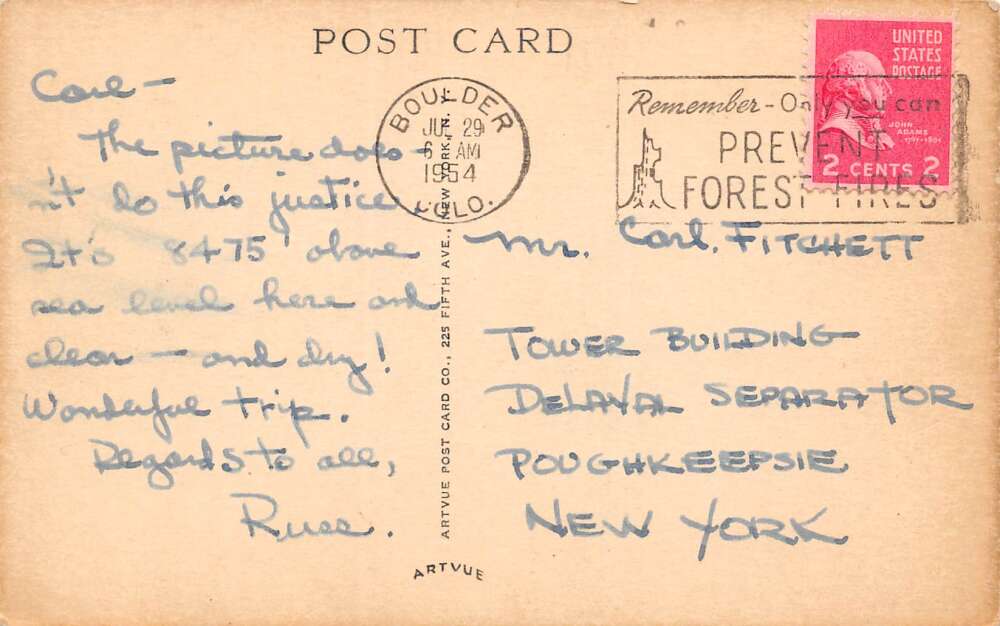 POST CARD
Carl —
The picture does-
n't do this justice
It's 8475' above
sea level here and
clear — and dry!
Wonderful trip.
Regards to all,
Russ.
BOULDER
JUL 29
6 AM
1954
COLO.
Remember - Only you can
PREVENT
FOREST FIRES
UNITED
STATES
POSTAGE
JOHN
ADAMS
1797-1801
2 CENTS 2
Mr. Carl. FITCHETT
TOWER BUILDING
DELAVAL SEPARATOR
POUGHKEEPSIE
NEW YORK
ARTVUE POST CARD CO., 225 FIFTH AVE., NEW YORK, N. Y.
ARTVUE